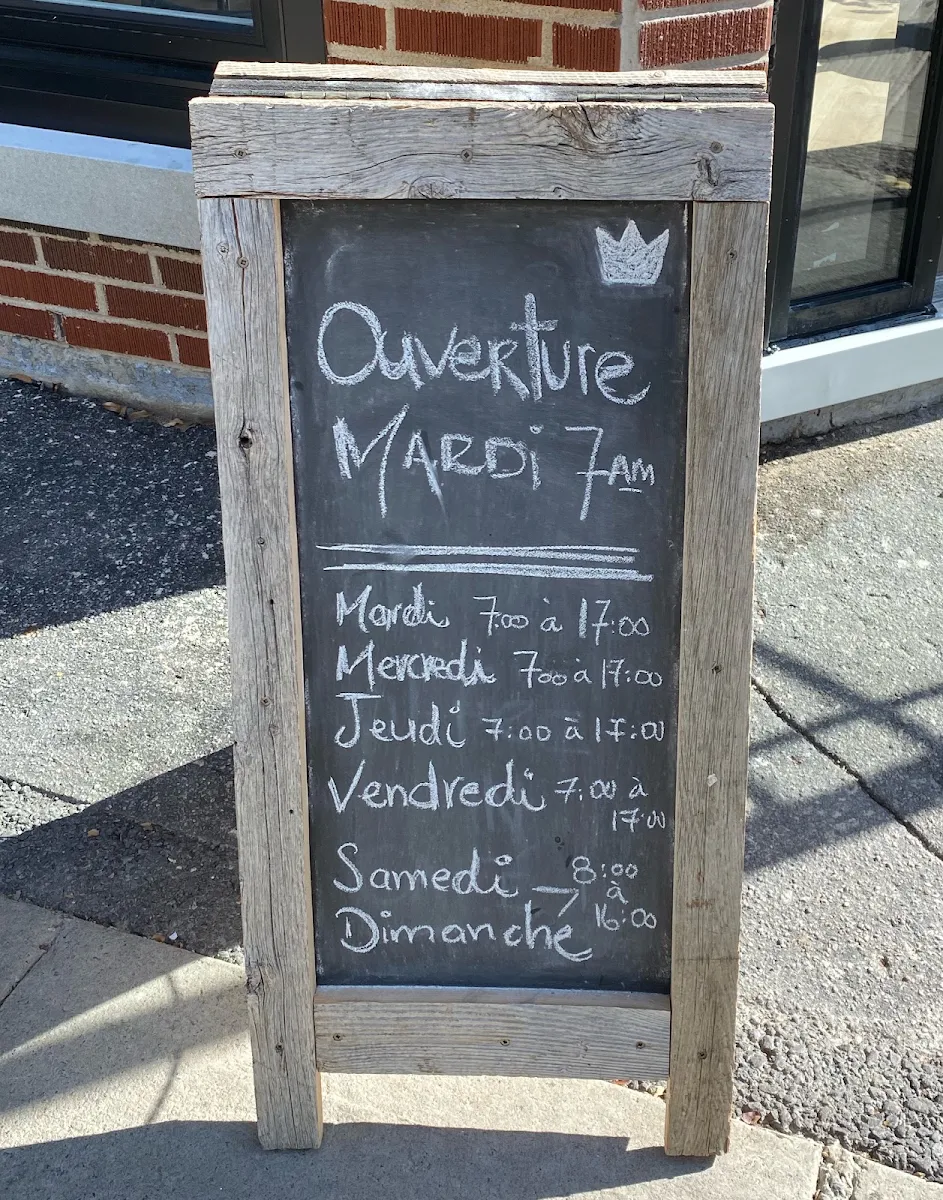 Ouverture
MARDi 7AM
Mardi 7:00 à 17:00
Mercredi 7:00 à 17:00
Jeudi 7:00 à 17:00
Vendredi 7:00 à
17:00
Samedi 8:00
à
Dimanche 16:00